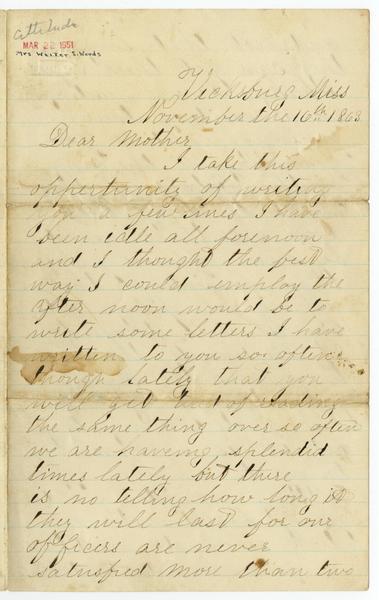 Attitude
MAR 22 1951
Mrs Walter E. Woods
Vicksburg Miss
November the 16th 1863
Dear Mother
I take this
oppertunity of writing
you a few lines I have
been idle all forenoon
and I thought the best
way I could employ the
after noon would be to
write some letters I have
written to you so often
though lately that you
will get tired of reading
the same thing over so often
we are haveing splendid
times lately but there
is no telling how long it
they will last for our
officers are never
satisfied more than two